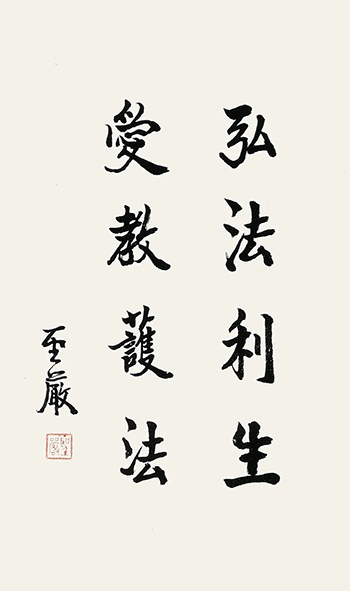 弘法利生
愛教護法
聖嚴